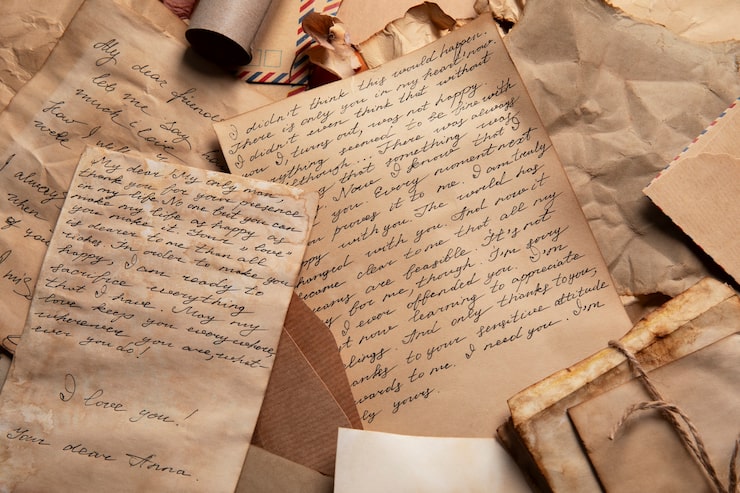 My dear friend
let me say
much I love
How I
well
I always
when
of you
I mis
My dear! My only man,
thank you for your presence
in my life. No one but you can
make my life as happy as
you make it. Your love
is dearer to me than all
riches. In order to make you
happy, I am ready to
sacrifice everything
that I have. May my
love keeps you everywhere
wherever you are, what-
ever you do!
I love you!
Your dear Anna.
I didn't think this would happen.
There is only you in my heart now.
I didn't even think that without
you I, turns out, was not happy
ything seemed to be fine with
although... There was always
ng that something was
Now I know that I
you. Every moment next
proves it to me. I am truly
ppy with you. The world has
hanged with you. And now it
came clear to me that all my
eams are feasible. It's not
y for me, though. I'm sorry
I ever offended you. I'm
t now learning to appreciate
lings. And only thanks to you,
anks to your sensitive attitude
wards to me. I need you. I'm
ly yours.